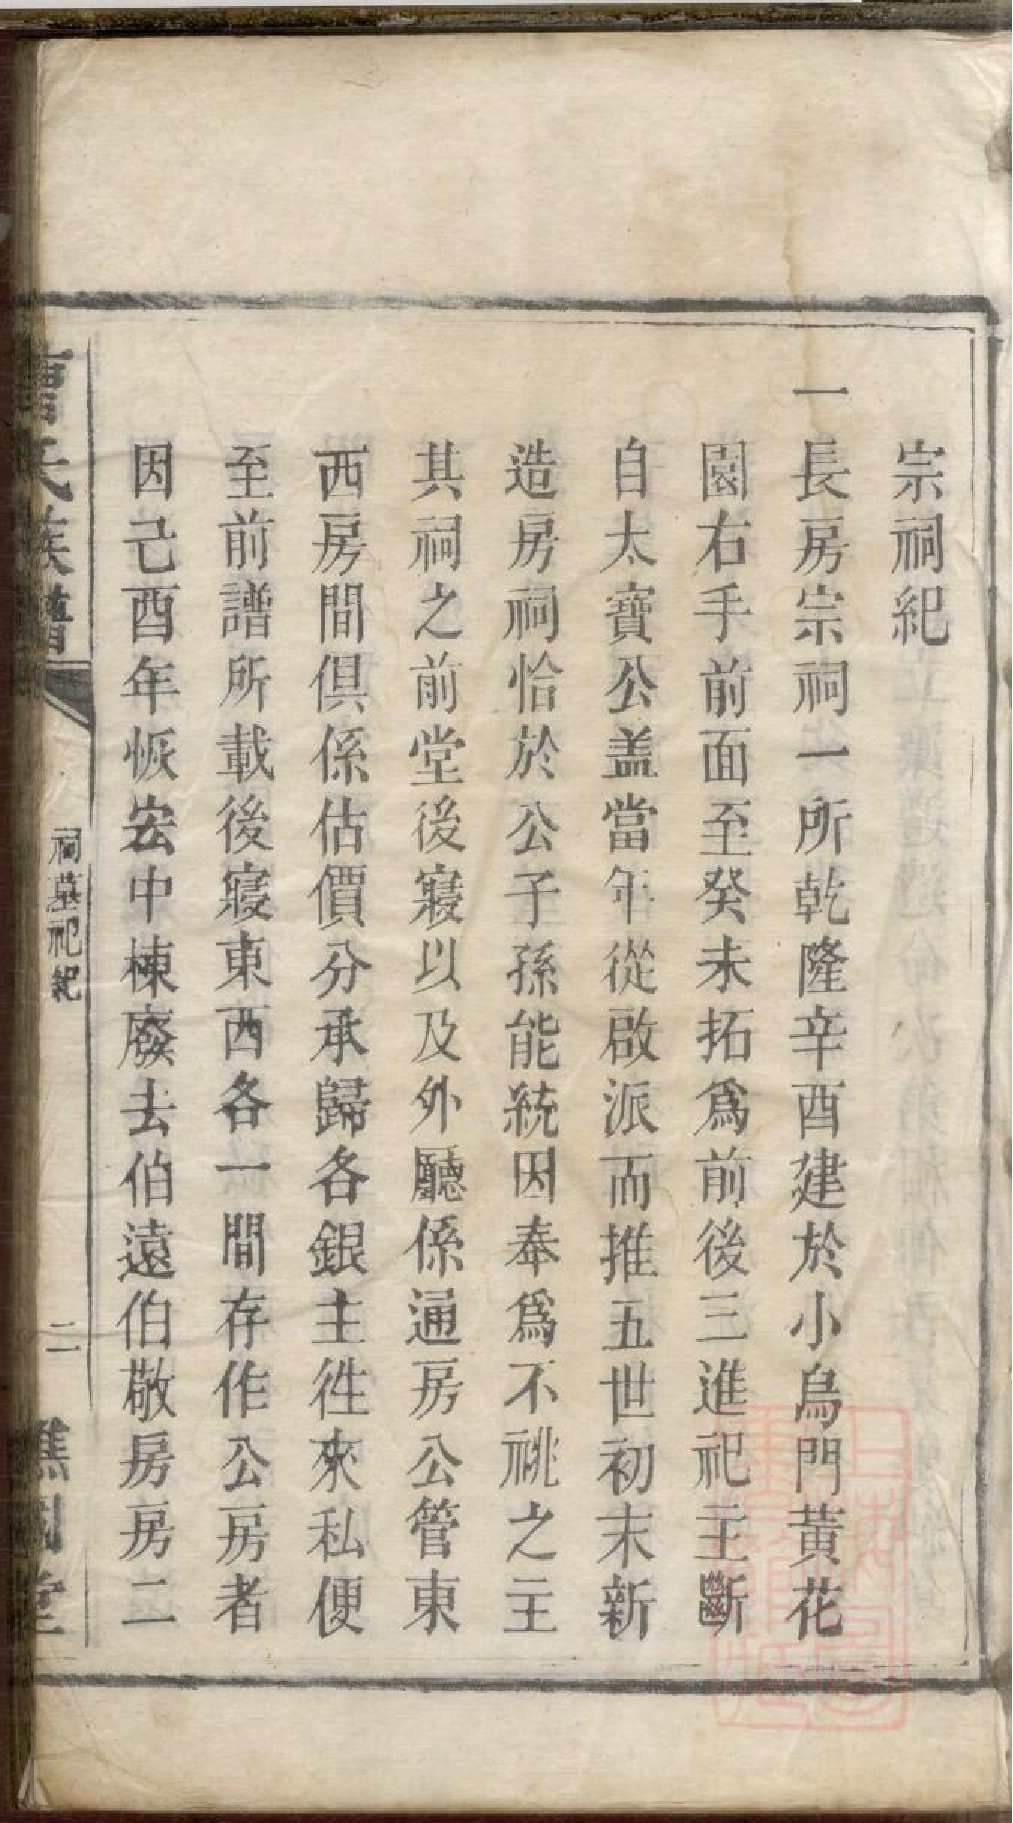 宗祠紀
一長房宗祠一所乾隆辛酉建於小烏門黃花
園右手前面至癸未拓爲前後三進祀主斷
自太寶公盖當年從啟派而推五世初末新
造房祠恰於公子孫能統因奉爲不祧之主
其祠之前堂後寢以及外廳係通房公管東
西房間俱係估價分承歸各銀主徃來私便
至前譜所載後寢東西各一間存作公房者
因己酉年恢宏中棟廢去伯遠伯敬房房二
曹氏族譜
祠墓祀紀
二
譙國堂